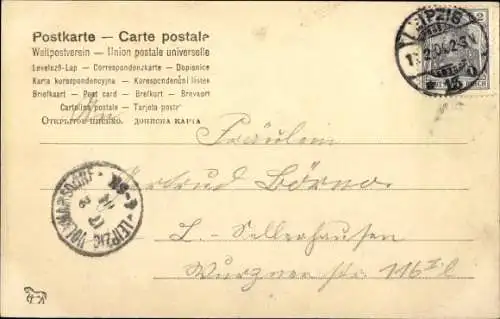 Postkarte — Carte postale
Weltpostverein — Union postale universelle
Levelező-Lap — Correspondenzkarte — Dopisnice
Karta korespondencyjna — Korespondenční lístek
Briefkaart — Post card — Brefkort — Brevkort
Cartolina postale — Tarjeta postal
Открытое письмо. дописна карта
LEIPZIG
2
* 13
LEIPZIG VOLKMARSDORF
Fräulein
Gertrud Börno
L.-Sellerhausen
Wurzner Str. 116 II l